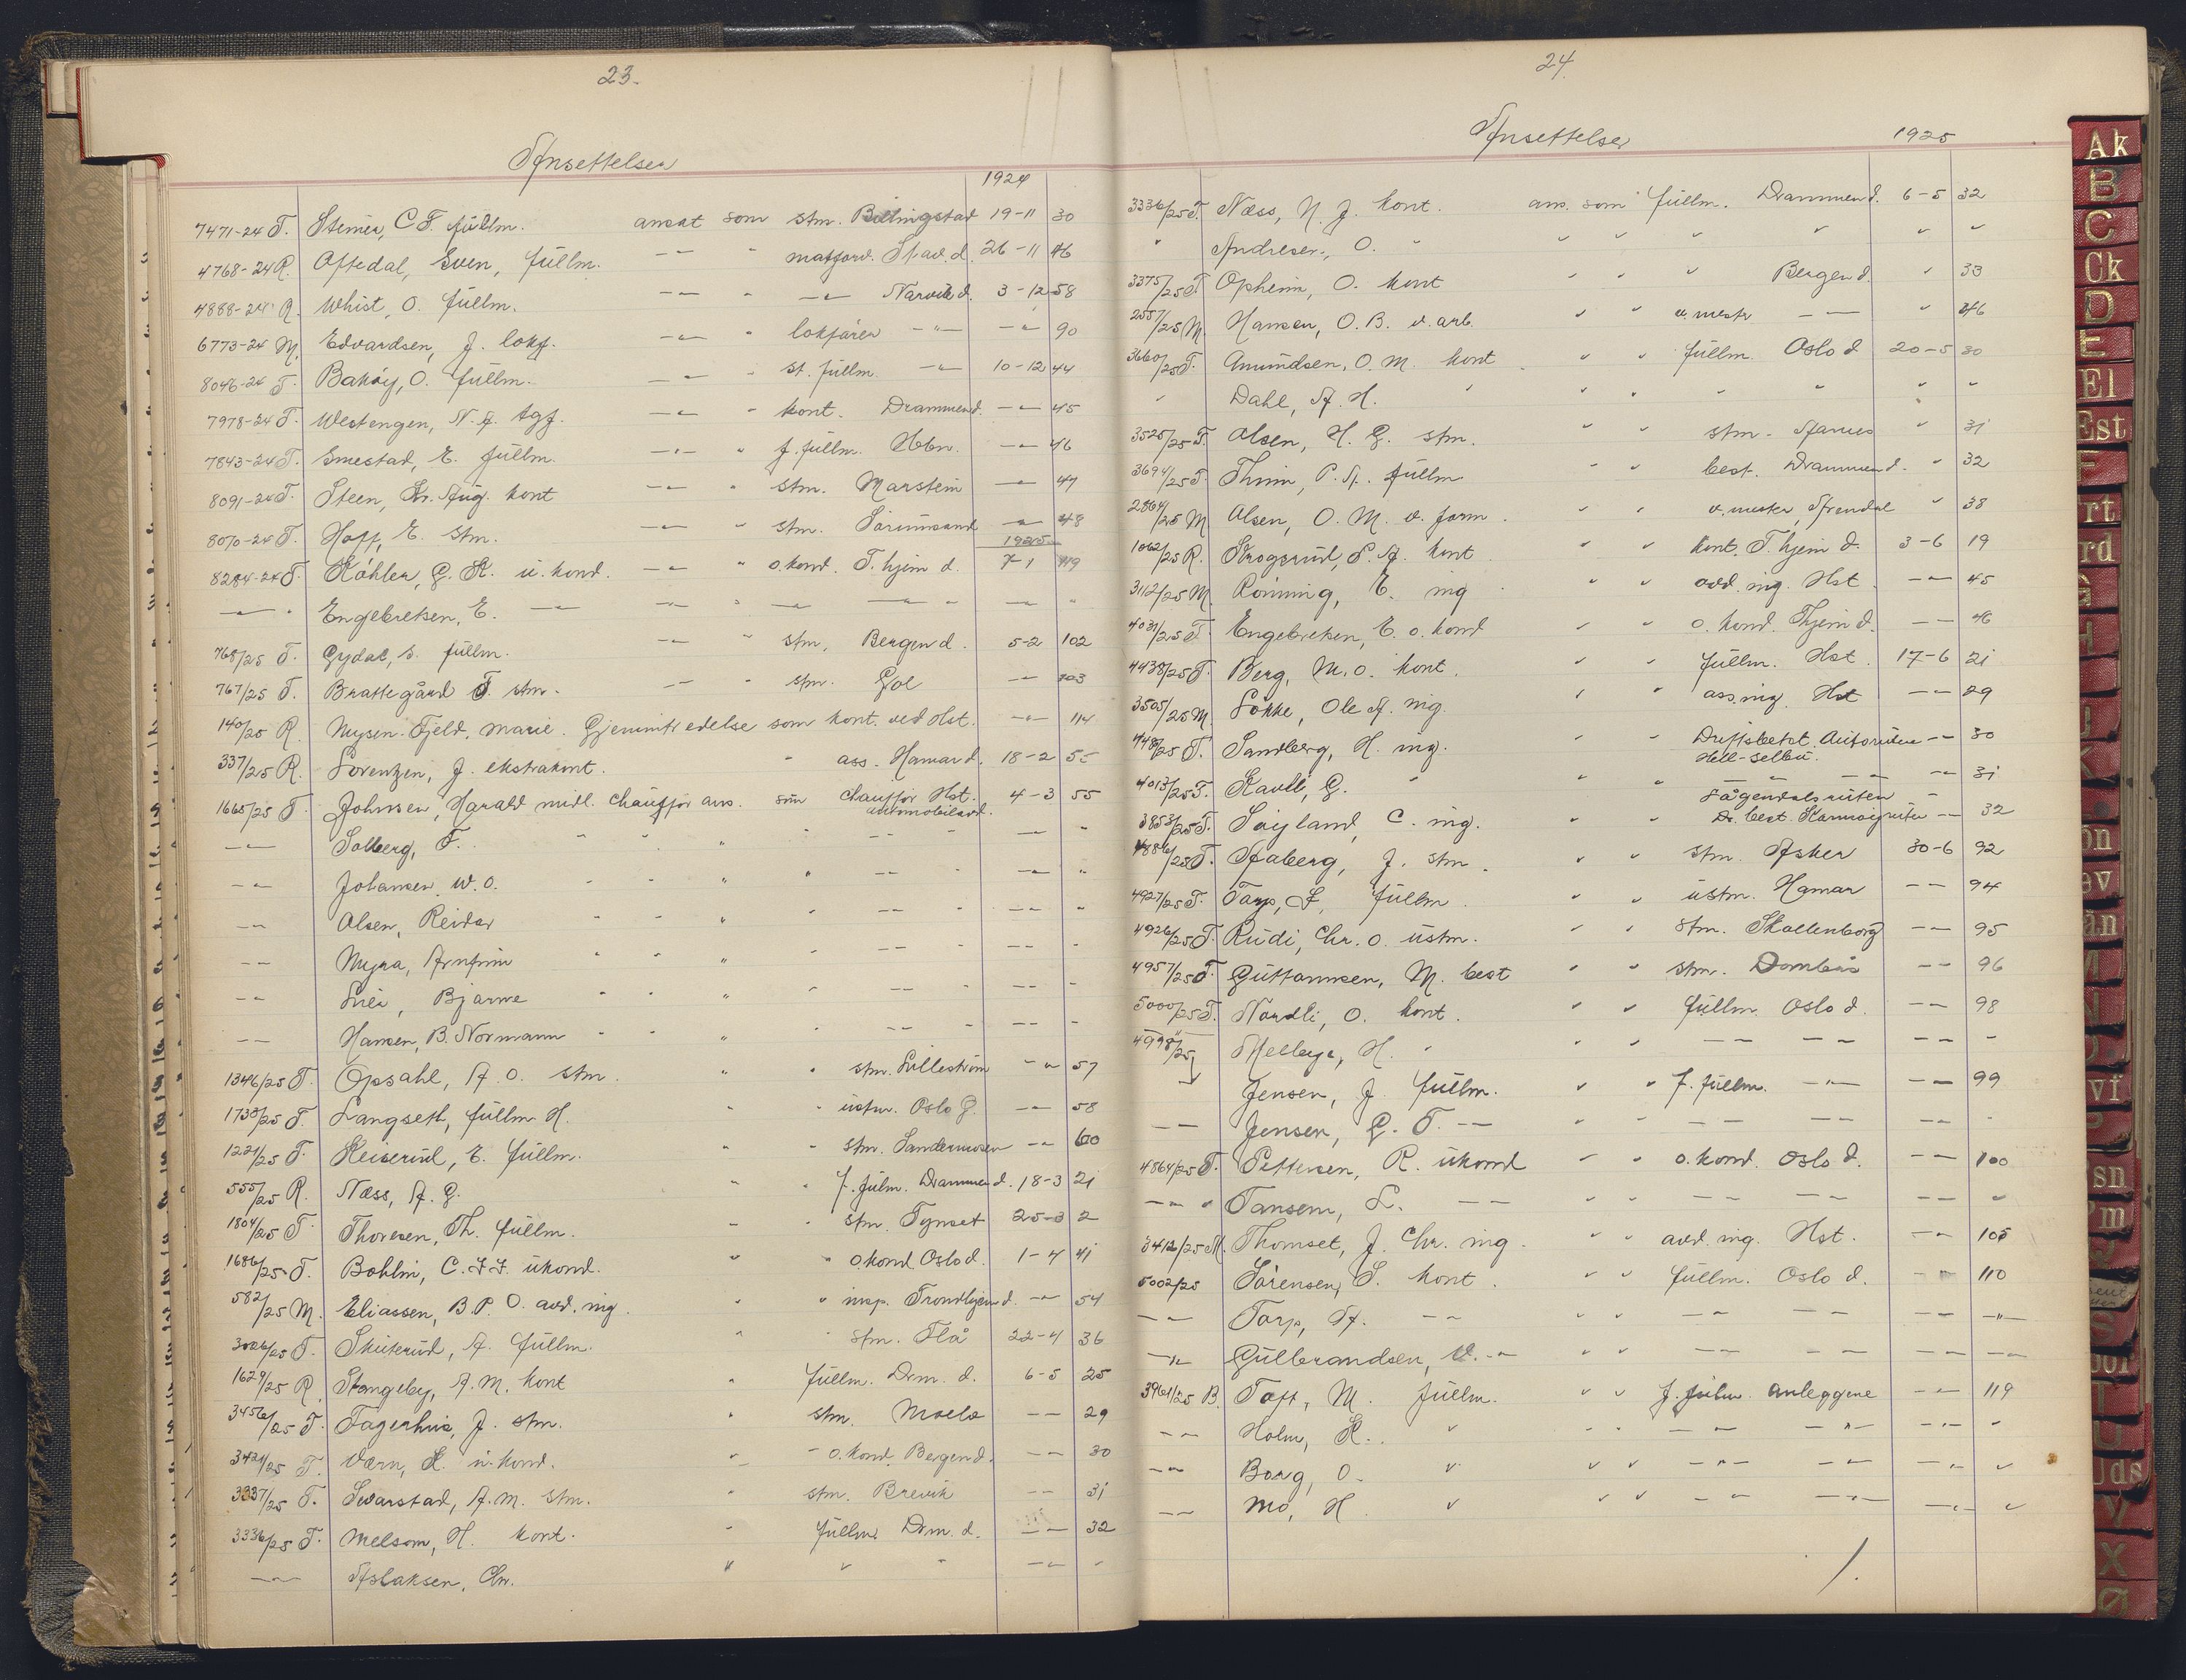 23.
Ansettelser
1924
7471-24 T. Steinen, C. F. füllm. ansat som stm. Billingstad 19-11 30
4768-24 R. Aftedal, Sven, füllm. -"- " matforv. Stav. d. 26-11 46
4888-24 R. Whist, O. füllm. -"- " -"- Narvik d. 3-12 58
6773-24 M. Edvardsen, J. lokf. -"- " lokfører -"- -"- 90
8046-24 T. Bakøy, O. füllm. -"- " st. füllm. -"- 10-12 44
7978-24 T. Westengen, N. A. tgf. -"- " kont. Drammen d. -"- 45
7843-24 T. Smestad, E. füllm. -"- " f. füllm. Hbn. -"- 46
8091-24 T. Steen, Kr. Aug. kont -"- " stm. Marstein -"- 47
8070-24 T. Hoff, E. stm. -"- " stm. Sørumsand -"- 48
1925
8284-24 T. Köhler, G. K. ü. kond. -"- " o. kond. T. hjem d. 7-1 119
-"- " Engebretsen, E. -"- -"- " -"- -"- " -"- "
768/25 T. Gydal, S. füllm. -"- " stm. Bergen d. 5-2 102
767/25 T. Brattegård T. stm. -"- " stm. Gol -"- 103
140/25 R. Nysen-Fjeld, Marie. Gjeninntredelse som kont. ved Hst. -"- 114
337/25 R. Lorentzen, J. ekstrakont. " ass. Hamar d. 18-2 55
1665/25 T. Johnsen, Harald midl. chauffør ans. som chauffør Hst. 4-3 55
automobilavd.
-"- Solberg, F. " " " " -- -- " -"- "
-"- Johansen, W. O. " " " " -- " -"- "
-"- Olsen, Reidar " " " " -- " -- "
-- Myra, Arnfinn " " " " -- " -- "
-- Lien, Bjarne " " " " -- " -- "
-- Hansen, B. Normann " " " " -- " -- "
1346/25 T. Opsahl, A. O. stm. " " stm. Lillestrøm -"- 57
1733/25 T. Langseth, füllm H. " " üstm. Oslo G. -"- 58
1221/25 T. Keiserud, E. füllm. " " stm. Sandermosen -"- 60
555/25 R. Næss, A. G. " " f. fülm. Drammen d. 18-3 21
1804/25 T. Thoresen, Th. füllm. " " stm. Tynset 25-3 2
1686/25 T. Bohlin, C. F. F. ükond. " " o. kond. Oslo d. 1-4 41
582/25 M. Eliassen, B. P. O. avd. ing. " " insp. Trondhjem d. -"- 54
3026/25 T. Skuterud, A. füllm. " " stm. Flå 22-4 36
1629/25 R. Stangeby, A. M. kont " füllm. Drm. d. 6-5 25
3456/25 T. Fagerhus, J. stm. " stm. Moelv -- 29
3421/25 T. Værn, K. ü. kond. " " o. kond. Bergen d. -- 30
3337/25 T. Svarstad, A. M. stm. " stm. Brevik -- 31
3336/25 T. Melsom, H. kont. " füllm. Drm. d. -- 32
-"- Aslaksen, Chr. " " " -"- "
24.
Ansettelser 1925
3336/25 T. Næss, N. J. kont. ans. som füllm. Drammen d. 6-5 32
" Andresen, O. " " " " " " "
3375/25 T. Opheim, O. kont " " " Bergen d. " 33
2557/25 M. Hansen, O. B. v. arb. " " v. mestr -- " 46
3660/25 T. Amundsen, O. M. kont " " füllm. Oslo d 20-5 30
" Dahl, A. H. " " " " " " "
3525/25 T. Olsen, H. G. stm. " " stm. Aarnes " 31
3694/25 T. Thim, P. A. füllm " " best. Drammen d. " 32
2864/25 M. Olsen, O. M. v. form. " " v. mester, Arendal " 38
1062/25 R. Skogsrud, S. A. kont " " kont. T. hjem d. 3-6 19
3112/25 M. Rönning, E. ing " " avd ing. Hst -"- 45
4031/25 T. Engebretsen, E. o. kond " " o. kond. Thjem d. -- 46
4438/25 T. Berg, M. O. kont. " " füllm. Hst 17-6 21
3505/25 M. Løkke, Ole A. ing. " " ass. ing. Hst -- 29
448/25 T. Sandberg, H. ing. " " Driftsbest. Autoruten -- 30
Hell-Selbu.
4013/25 T. Kavli, G. " " " -- -- -- -- 31
Lågendalsruten
3853/25 T. Søyland, C. ing. " " Dr. best. Karmøyruten -- 32
4886/25 T. Aaberg, J. stm. " " stm. Asker 30-6 92
4927/25 T. Tarp, F. füllm. " " üstm. Hamar -- 94
4926/25 T. Rudi, Chr. O. üstm. " " stm. Skollenborg -- 95
4957/25 T. Guttormsen, M. best " " stm. Dombås -- 96
5000/25 T. Nordli, O. kont. " " füllm. Oslo d. -- 98
4998/25 Mellbye, H. " " " -- -- -- "
Jensen, J. füllm. " " f. füllm. -"- -- 99
-- Jensen, G. T. -- " " -- -- -- "
4864/25 T. Pettersen, R. ükond " " o. kond. Oslo d. -- 100
-- " Tansem, L. -- " " -- -- -- "
3412/25 M. Thomset, J. Chr. ing. " " avd. ing. Hst. -- 105
5002/25 Sørensen, S. kont. " " füllm. Oslo d. -- 110
-- Tarp, A. -- " " -- -- -- -"-
-"- Gulbrandsen, V. -"- " " -- -- -- --
3961/25 B. Toft, M. füllm. " " f. fulm. Anleggene -- 119
-- Holm, K. " " " -- -"- -"- "
-- Borg, O. " " " -- -- -"- "
-- Mo, H. " " " -- -"- -"- "
Ak
B
C
Ck
D
E
El
Est
F
H
J
K
M
N
P
S
T
U
Uds
V
X
Ø